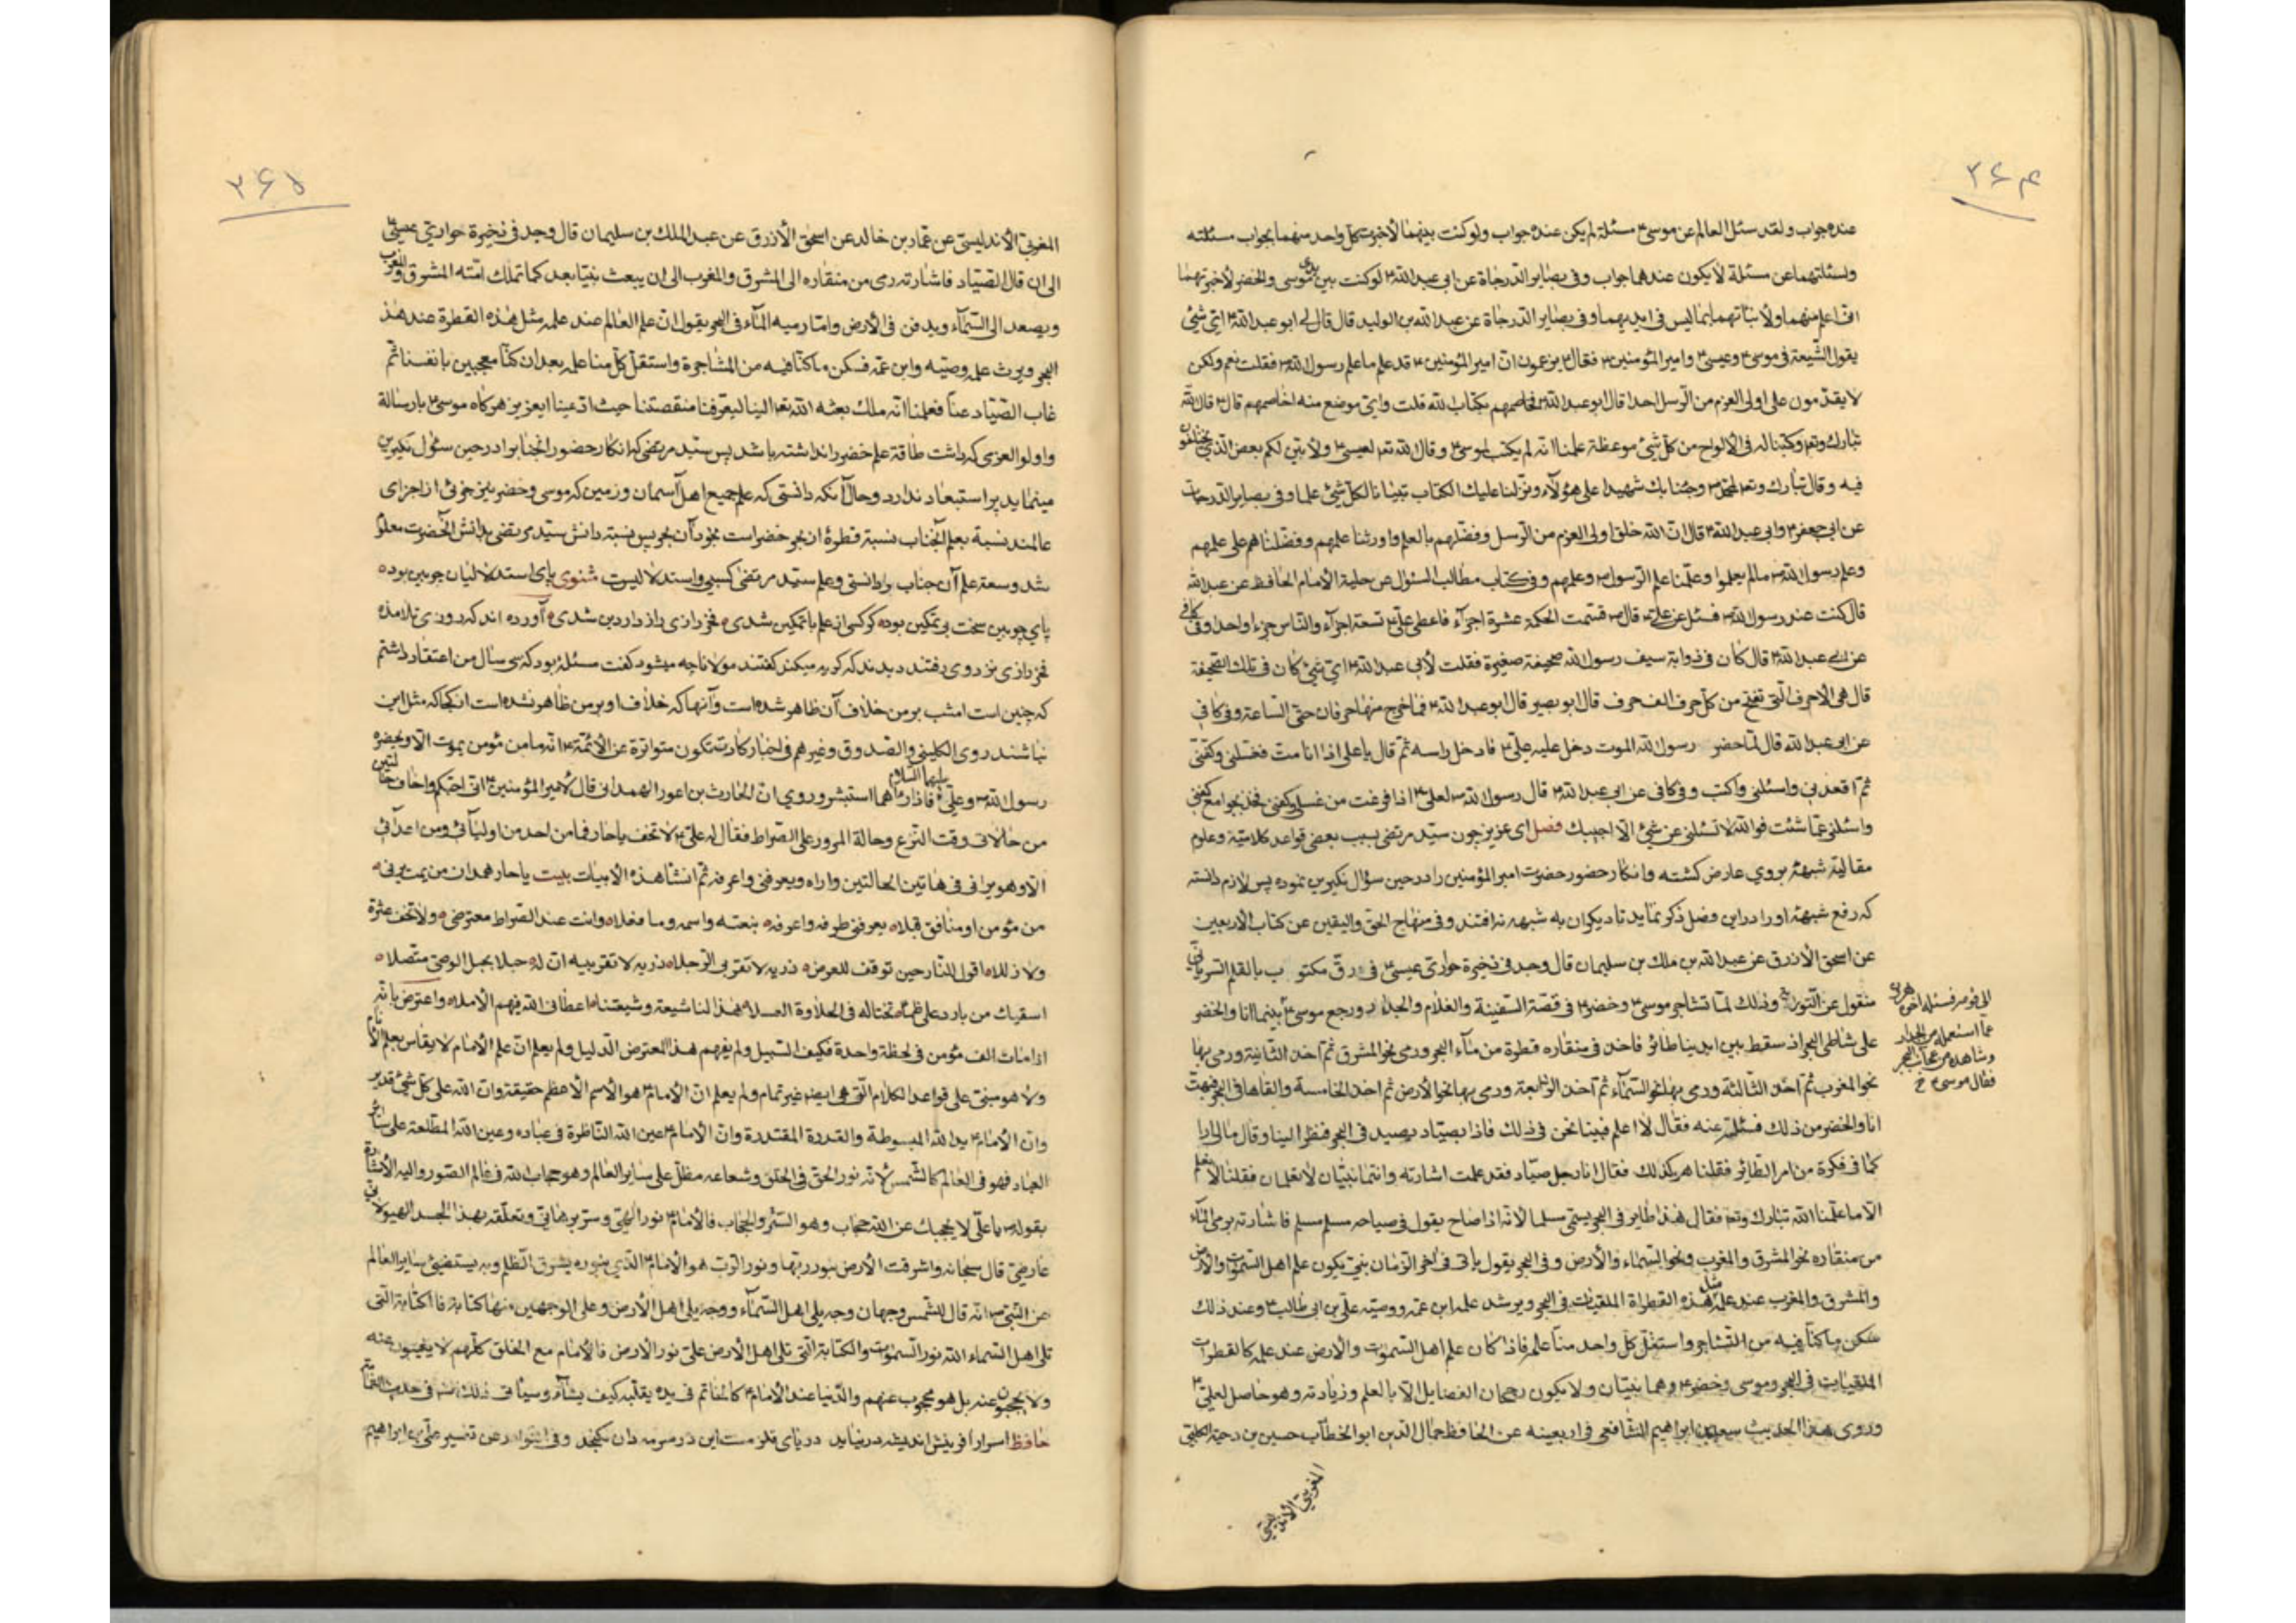 ۳۶۴
عنده جواب ولقد سئل العالم عن موسى ع مسئلة لم يكن عنده جواب ولو كنت بينهما لأخبرت كل واحد منهما بجواب مسئلته
ولسئلتهما عن مسئلة لا يكون عندهما جواب وفى بصاير الدرجاة عن ابى عبد الله ع لو كنت بين يدى موسى والخضر لأخبرتهما
انى اعلم منهما ولأنبأتهما بما ليس فى ايديهما وفى بصاير الدرجاة عن عبد الله بن الوليد قال قال لى ابو عبد الله ع اى شئ
يقول الشيعة فى موسى ع وعيسى ع وامير المؤمنين ع فقال يزعمون ان امير المؤمنين ع قد علم ما علم رسول الله ص فقلت نعم ولكن
لا يقدمون على اولى العزم من الرسل احدا قال ابو عبد الله ع فخاصمهم بكتاب الله قلت واى موضع منه اخاصمهم قال ع قال الله
تبارك وتعا وكتبنا له فى الألواح من كل شئ موعظة علمنا انه لم يكتب لموسى ع وقال الله تعا لعيسى ع ولأبين لكم بعض الذى يختلفون
فيه وقال تبارك وتعا لمحمد ص وجئنا بك شهيدا على هؤلاء ونزلنا عليك الكتاب تبيانا لكل شئ علما وفى بصاير الدرجات
عن ابى جعفر ع وابى عبد الله ع قال ان الله خلق اولى العزم من الرسل وفضلهم بالعلم واورثنا علمهم وفضلنا هم على علمهم
وعلم رسول الله ص مالم يعلموا وعلمنا علم الرسول ص وعلمهم وفى كتاب مطالب السئول عن حلية الأمام الحافظ عن عبد الله
قال كنت عند رسول الله ص فسئل عن على ع قال ص قسمت الحكمة عشرة اجزآء فاعطى على ع تسعة اجزآء والناس جزءا واحدا وفى كافى
عن ابى عبد الله ع قال كان فى ذوابة سيف رسول الله صحيفة صغيرة فقلت لأبى عبد الله ع اى شئ كان فى تلك الصحيفة
قال هى الأحرف التى تفتح من كل حرف الف حرف قال ابو بصير قال ابو عبد الله ع فما خرج منها حرفان حتى الساعة وفى كافى
عن ابى عبد الله قال لما حضر رسول الله الموت دخل عليه على ع فادخل راسه ثم قال يا على اذا انا مت فغسلنى وكفنى
ثم اقعدنى واسئلنى واكتب وفى كافى عن ابى عبد الله ع قال رسول الله ص لعلى ع اذا فرغت من غسلى وكفنى فخذ بجوامع كفنى
واسئلنى عما شئت فوالله لا تسئلنى عن شئ الا اجبتك فصل اى عزيز چون سيد مرتضى بسبب بعضى قواعد كلاميه وعلوم
مقاليه شبهۀ بروى عارض كشته وانكار حضور حضرت امير المؤمنين را در حين سؤال نكيرين نموده پس لازم دانسته
كه رفع شبهۀ او را در اين فصل ذكر نمايد تا ديكران به شبهه نه افتند وفى منهاج الحق واليقين عن كتاب الاربعين
عن اسحق الأزرق عن عبد الله بن ملك بن سليمان قال وجد فى ذخيرة حوارى عيسى ع فى رق مكتوب بالقلم السريانى
منقول عن التورية وذلك لما تشاجر موسى ع وخضر ع فى قصة السفينة والغلام والجدار ورجع موسى ع بينما انا والخضر
على شاطى البحر اذ سقط بين ايدينا طائر فاخذ فى منقاره قطرة من مآء البحر ورمى نحو المشرق ثم اخذ الثانية ورمى بها
نحو المغرب ثم اخذ الثالثة ورمى بها نحو السمآء ثم اخذ الرابعة ورمى بها نحو الأرض ثم اخذ الخامسة والقاها فى البحر فبهت
انا والخضر من ذلك فسئلته عنه فقال لا اعلم فبينا نحن فى ذلك فاذا بصياد يصيد فى البحر فنظر الينا وقال مالى ارا
كما فى فكرة من امر الطائر فقلنا هو كذلك فقال انا رجل صياد فقد علمت اشارته وانتما نبيان لا تعلمان فقلنا لا نعلم
الا ما علمنا الله تبارك وتعا فقال هذا طاير فى البحر يسمى مسلما لانه اذا صاح يقول فى صياحه مسلم مسلم فاشارته برمى المآء
من منقاره نحو المشرق والمغرب ونحو السماء والأرض وفى البحر يقول يأتى فى اخر الزمان نبى يكون علم اهل السموات والأرض
والمشرق والمغرب عند علمه مثل هذه القطراة الملقيات فى البحر ويرث علمه ابن عمه ووصيه على بن ابى طالب ع وعند ذلك
سكن ما كنا فيه من التشاجر واستقل كل واحد منا علمه فاذا كان علم اهل السموات والأرض عند علمه كالقطرات
الملقيات فى البحر وموسى وخضر ع وهما نبيان ولا يكون رجحان الفضايل الا بالعلم وزيادته وهو حاصل لعلى ع
وروى هذا الحديث سعد بن ابراهيم الشافعى فى اربعينه عن الحافظ جمال الدين ابو الخطاب حسين بن دحية الكلبى
المغربى الأندليسى
الى قومه فسئله اخوه هرون
عما استعمله من الجدار
وشاهده من عجائب البحر
فقال موسى ع خ
۳۶۵
المغربى الأندليسى عن عمار بن خالد عن اسحق الأزرق عن عبد الملك بن سليمان قال وجد فى ذخيرة حوارى عيسى ع
الى ان قال الصياد فاشارته رمى من منقاره الى المشرق والمغرب الى ان يبعث نبيا بعد كما تملك امته المشرق والمغرب
ويصعد الى السمآء ويدفن فى الأرض واما رميه المآء فى البحر يقول ان علم العالم عند علمه مثل هذه القطرة عند هذ
البحر ويرث علمه وصيه وابن عمه فسكن ما كنا فيه من المشاجرة واستقل كل منا علمه بعد ان كنا معجبين بانفسنا ثم
غاب الصياد عنا فعلمنا انه ملك بعثه الله تعا الينا ليعرفنا منقصتنا حيث ادعينا ايعزيز هركاه موسى ع بارسالة
واولو العزمى كه داشت طاقة علم خضر را نداشته باشد پس سيد مرتضى كه انكار حضور انجناب را در حين سئول نكيرين
مينمايد پر استبعاد ندارد وحال آنكه دانستى كه علم جميع اهل آسمان وزمين كه موسى وخضر نيز جزئى از اجزاى
عالمند نسبة بعلم آنجناب نسبة قطرۀ از بحر خضر است بخود آن بحر پس نسبة دانش سيد مرتضى بدانش آنحضرت معلوم
شد وسعة علم آن جناب را دانستى وعلم سيد مرتضى كسبى واستدلاليست مثنوى پاى استدلاليان چوبين بوده
پاى چوبين سخت بى تمكين بوده كر كسى از علم با تمكين شدى فخر رازى راز دار دين شدى آورده اند كه روزى تلامذه
فخر رازى نزد وى رفتند ديدند كه كريه ميكند كفتند مولانا چه ميشود كفت مسئلۀ بود كه سى سال من اعتقاد داشتم
كه چنين است امشب بر من خلاف آن ظاهر شده است وآنها كه خلاف او بر من ظاهر نشده است از كجا كه مثل اين
نباشند روى الكلينى والصدوق وغيرهم فى اخبار كادت تكون متواترة عن الأئمة ع انه ما من مؤمن يموت الا ويحضره
رسول الله ص وعلى ع عليهما السلام فاذا رآهما استبشر وروى ان الحارث بن اعور الهمدانى قال لأمير المؤمنين ع انى احبكم واخاف حالتين
من حالاتى وقت النزع وحالة المرور على الصراط فقال له على ع لا تخف يا حار فما من احد من اوليآئى ومن اعدآئى
الا وهو يرانى فى هاتين الحالتين واراه ويعرفنى واعرفه ثم انشأ هذه الأبيات بيت يا حار همدان من يمت يرنى
من مؤمن او منافق قبلا يعرفنى طرفه واعرفه بنعته واسمه وما فعلا وانت عند الصراط معترضى ولا تخف عثرة
ولا زللا اقول للنار حين توقف للعرض ذريه لا تقربى الرجلا ذريه لا تقربيه ان له حبلا بحبل الوصى متصلا
اسقيك من بارد على ظمأ تخاله فى الحلاوة العسلا هذا لنا شيعة وشيعتنا اعطانى الله فيهم الأملا واعترض بانه
اذا مات الف مؤمن فى لحظة واحدة فكيف السبيل ولم يفهم هذا المعترض الدليل ولم يعلم ان علم الأمام لا يقاس بعلم الأنام
ولا هو مبنى على قواعد الكلام التى هى ايضا غير تمام ولم يعلم ان الأمام ع هو الأسم الأعظم حقيقة وان الله على كل شئ قدير
وان الأمام ع يد الله المبسوطة والقدرة المقتدرة وان الأمام ع عين الله الناظرة فى عباده وعين الله المطلعة على ساير
العباد فهو فى العالم كالشمس لأنه نور الحق فى الخلق وشعاعه مطل على ساير العالم وهو حجاب الله فى عالم الصور واليه الأشارة
بقوله ص يا على لا يحجبك عن الله حجاب وهو الستر والحجاب فالأمام ع نور الهى وسر ربانى وتعلقه بهذا الجسد الهيولانى
عارضى قال سبحانه واشرقت الأرض بنور ربها ونور الرب هو الأمام ع الذى بنوره يشرق الظلم وبه يستضئ ساير العالم
عن النبى ص انه قال للشمس وجهان وجه يلى اهل السمآء ووجه يلى اهل الأرض وعلى الوجهين منها كتابة فالكتابة التى
تلى اهل السماء الله نور السموات والكتابة التى تلى اهل الأرض على نور الأرض فالأمام مع الخلق كلهم لا يغيبون عنه
ولا يحجبون عنه بل هو محجوب عنهم والدنيا عند الأمام ع كالخاتم فى يده يقلبه كيف يشآء وسيأتى فى ذلك فى حديث الغمامة
حافظ اسرار افرينش انديشه در نيابد درياى قلزمست اين در سرمه دان نكنجد وفى النوادر عن تفسير على بن ابراهيم